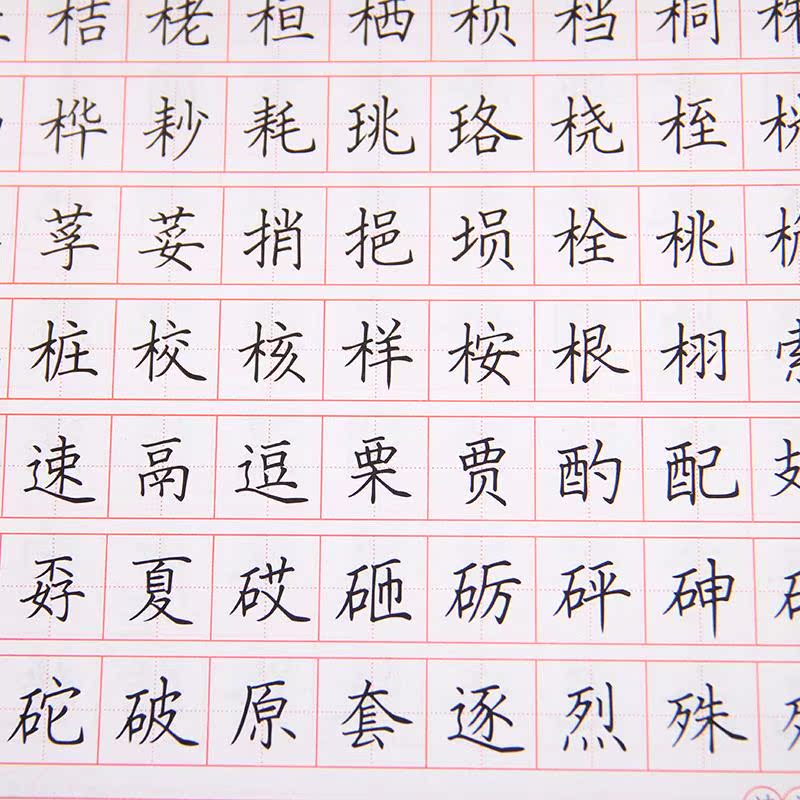 桔栳桓栖桢档桐株
桦耖耗珧珞桡桎
莩荽捎挹埙栓桃桅
桩校核样桉根栩索
速鬲逗栗贾酌配
孬夏砹砸砺砰砷
砣破原套逐烈殊